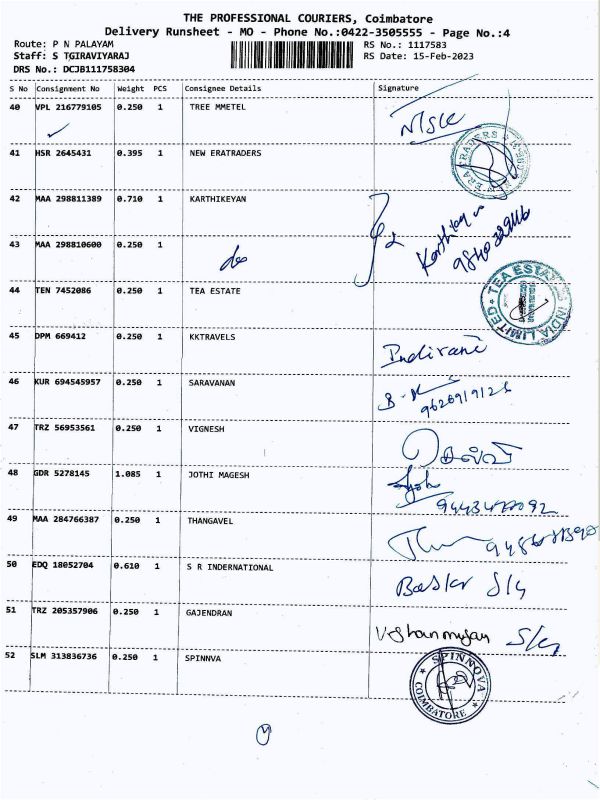 THE PROFESSIONAL COURIERS, Coimbatore
Delivery Runsheet - MO - Phone No.:0422-3505555 - Page No.:4
Route: P N PALAYAM RS No.: 1117583
Staff: S TGIRAVIYARAJ RS Date: 15-Feb-2023
DRS No.: DCJB111758304
S No Consignment No Weight PCS Consignee Details Signature
40 VPL 216779105 0.250 1 TREE MMETEL
41 HSR 2645431 0.395 1 NEW ERATRADERS
42 MAA 298811389 0.710 1 KARTHIKEYAN
43 MAA 298810600 0.250 1 do
44 TEN 7452086 0.250 1 TEA ESTATE TEA ESTATES INDIA LIMITED
45 DPM 669412 0.250 1 KKTRAVELS Indirani
46 KUR 694545957 0.250 1 SARAVANAN
47 TRZ 56953561 0.250 1 VIGNESH
48 GDR 5278145 1.085 1 JOTHI MAGESH
49 MAA 284766387 0.250 1 THANGAVEL
50 EDQ 18052704 0.610 1 S R INDERNATIONAL
51 TRZ 205357906 0.250 1 GAJENDRAN
52 SLM 313836736 0.250 1 SPINNVA SPINNOVA COIMBATORE